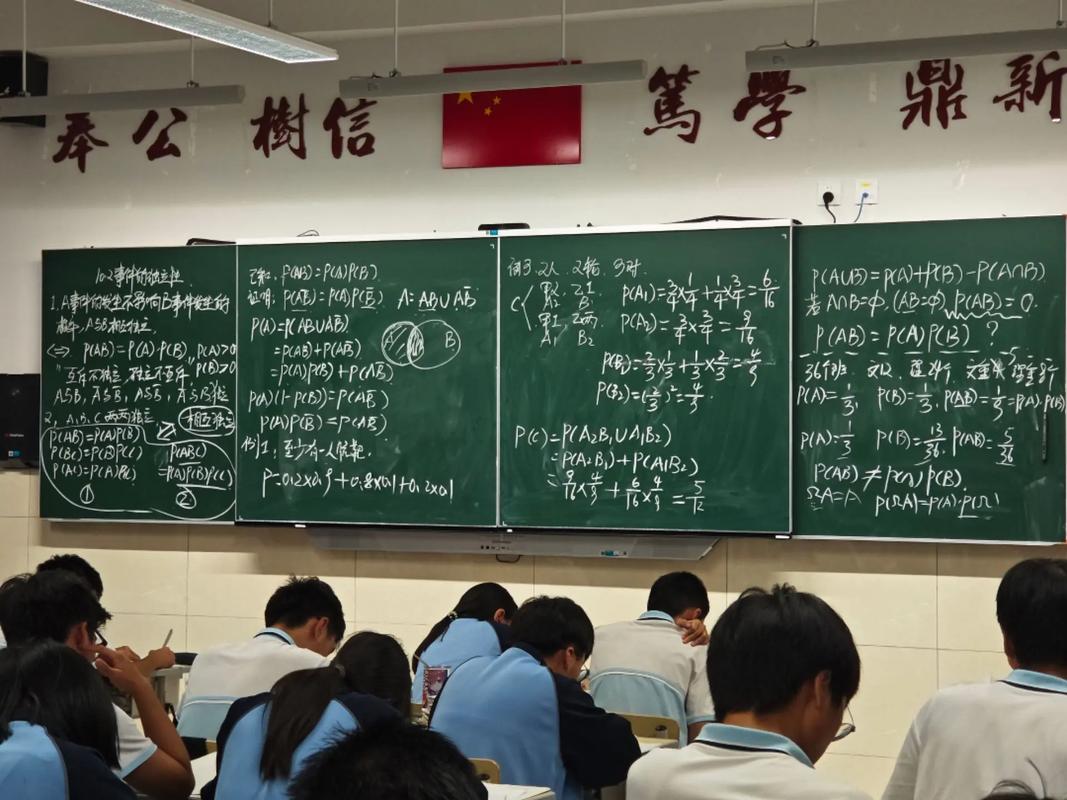 奉公 樹信 篤學 鼎新
10.2 事件的独立性
1. A事件的发生不影响B事件发生的
概率, A与B相互独立.
⟺ P(AB)=P(A)·P(B), P(A)>0
"互斥不独立, 独立不互斥" P(B)>0
A与B, A与B̄, Ā与B̄, Ā与B独立
2. A、B、C两两独立 相互独立
P(AB)=P(A)P(B)
P(BC)=P(B)P(C)
P(AC)=P(A)P(C)
①
P(ABC)
=P(A)P(B)P(C)
②
已知: P(AB)=P(A)P(B)
证明: P(AB̄)=P(A)P(B̄) A=AB∪AB̄
P(A)=P(AB∪AB̄)
=P(AB)+P(AB̄)
=P(A)P(B)+P(AB̄)
P(A)(1-P(B))=P(AB̄)
P(A)P(B̄)=P(AB̄)
A B
例1: 至少有一人
P=0.2×0.9+0.8×0.1+0.2×0.1
例3. 2人. 2轮. 3对.
C
P(A₁)=3/4×1/4+1/4×3/4=6/16
P(A₂)=3/4×3/4=9/16
P(B₁)=2/3×1/3+1/3×2/3=4/9
P(B₂)=(2/3)²=4/9.
P(C)=P(A₂B₁∪A₁B₂)
=P(A₂B₁)+P(A₁B₂)
=9/16×4/9+6/16×4/9=5/12
P(A∪B)=P(A)+P(B)-P(A∩B)
若A∩B=φ, (AB=φ) P(AB)=0.
P(AB)=P(A)P(B)?
P(A)=1/3, P(B)=1/3, P(AB)=1/9=P(A)·P(B)
P(A)=1/3 P(B)=13/36, P(AB)=5/36
P(AB)≠P(A)P(B).
ΩA=A P(ΩA)=P(A)·P(Ω)